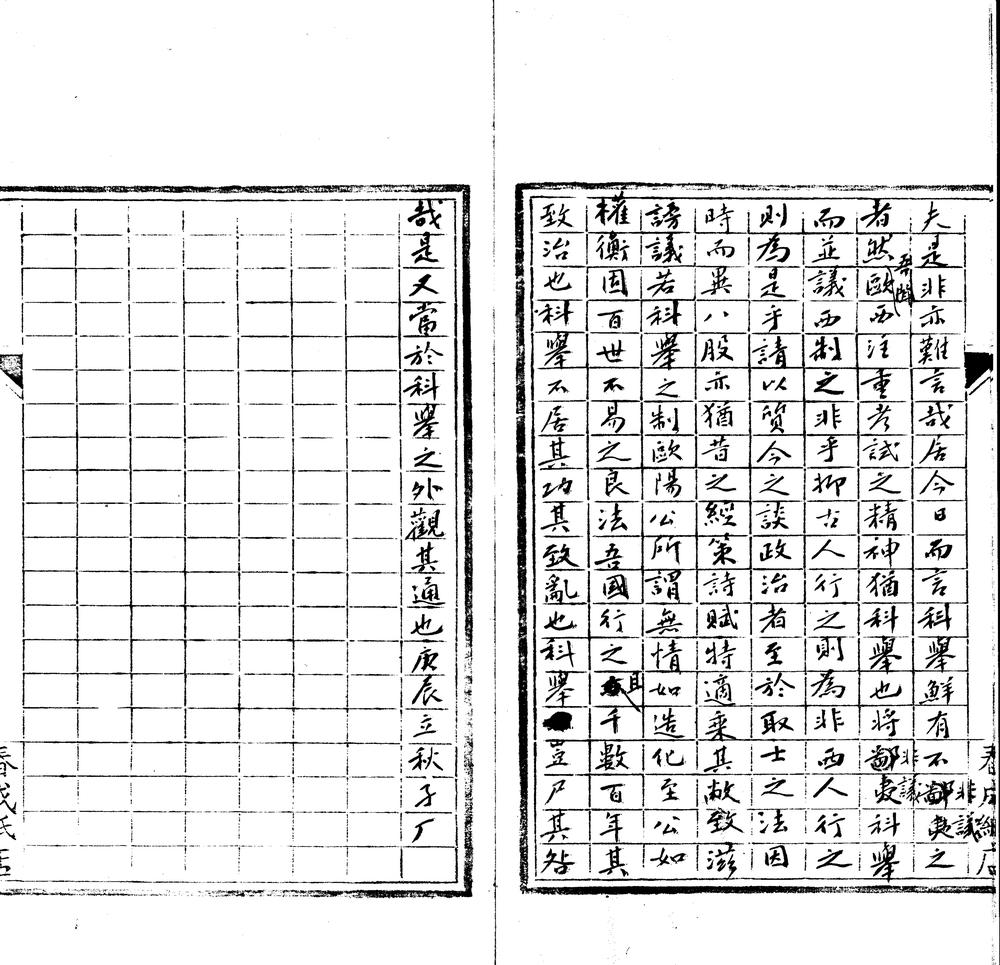 夫是非亦難言哉居今日而言科舉鮮有不鄙夷之
非議
者然歐西注重考試之精神猶科舉也將鄙夷科舉
吾聞
非議
而並議西制之非乎抑古人行之則為非西人行之
則為是乎請以質今之談政治者至於取士之法因
時而異八股亦猶昔之經策詩賦特適乘其敝致滋
謗議若科舉之制歐陽公所謂無情如造化至公如
權衡固百世不易之良法吾國行之千數百年其
且
致治也科舉不居其功其致亂也科舉豈尸其咎
哉是又當於科舉之外觀其通也庚辰立秋子厂